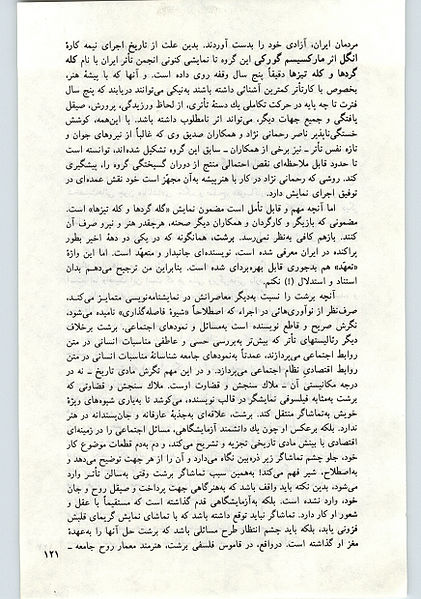 مردمان ایران، آزادی خود را بدست آوردند. بدین علت از تاریخ اجرای نیمه کارهٔ
انگل اثر مارکسیسم گورکی این گروه تا نمایشی کنونی انجمن تأتر ایران با نام کله
گردها و کله تیزها دقیقاً پنج سال وقفه روی داده است. و آنها که با پیشهٔ هنر،
بخصوص با کارتأتر کمترین آشنائی داشته باشند به‌نیکی می‌توانند دریابند که پنج سال
فترت تا چه پایه در حرکت تکاملی یك دستهٔ تأتری، از لحاظ ورزیدگی، پرورش، صیقل
یافتگی و جمیع جهات دیگر، می‌تواند اثر نامطلوب داشته باشد. با این‌همه، کوشش
خستگی‌ناپذیر ناصر رحمانی نژاد و همکاران صدیق وی که غالباً از نیروهای جوان و
تازه نفس تأتر ـ نیز برخی از همکاران ـ سابق این گروه تشکیل شده‌اند، توانسته است
تا حدود قابل ملاحظه‌ای نقص احتمالی منتج از دوران گسیختگی گروه را، پیشگیری
کند. روشی که رحمانی نژاد در کار با هنرپیشه به‌آن مجهز است خود نقش عمده‌ای در
توفیق اجرای نمایش دارد.
اما آنچه مهم و قابل تأمل است مضمون نمایش «گله گردها و کله تیزها» است.
مضمونی که بازیگر و کارگردان و همکاران دیگر صحنه، هرچقدر هنر و نیرو صرف آن
کنند. بازهم کافی به‌نظر نمی‌رسد. برشت، همانگونه که در یکی دو دههٔ اخیر بطور
پراکنده در ایران معرفی شده است، نویسنده‌ای جانبدار و متعهد است. اما این واژهٔ
«تعهد» هم بدجوری قابل بهره‌برداری شده است. بنابراین من ترجیح می‌دهم بدان
استناد و استدلال (!) نکنم.
آنچه برشت را نسبت به‌دیگر معاصرانش در نمایشنامه‌نویسی متمایز می‌کند،
صرف‌نظر از نوآوری‌هائی در اجراء که اصطلاحاً «شیوهٔ فاصله‌گذاری» نامیده می‌شود،
نگرش صریح و قاطع نویسنده است به‌مسائل و نمودهای اجتماعی. برشت برخلاف
دیگر رئالیستهای تأتر که بیش‌تر به‌بررسی حسی و عاطفی مناسبات انسانی در متن
روابط اجتماعی می‌پردازند، عمدتاً به‌نمودهای جامعه شناسانهٔ مناسبات انسانی در متن
روابط اقتصادی نظام اجتماعی می‌پردازد. و در این مهم نگرش مادی تاریخ ـ نه در
درجه مکانیستی آن ـ ملاك سنجش و قضاوت اوست. ملاك سنجش و قضاوتی که
برشت به‌مثابه فیلسوفی نمایشگر در قالب نویسنده، می‌کوشد تا به‌یاری شیوه‌های ویژهٔ
خویش به‌تماشاگر منتقل کند. برشت، علاقه‌ای به‌جذبهٔ عارفانه و جان‌بسندانه در هنر
ندارد. بلکه برعکس او چون یك دانشمند آزمایشگاهی، مسائل اجتماعی را در زمینه‌ای
اقتصادی با بینش مادی تاریخی تجزیه و تشریح می‌کند، و دم به‌دم قطعات موضوع کار
خود، جلو چشم تماشاگر زیر ذره‌بین نگاه می‌دارد و آن را از هر جهت توضیح می‌دهد و
به‌اصطلاح، شیر فهم می‌کند! به‌همین سبب تماشاگر برشت وقتی به‌سالن تأتر وارد
می‌شود، بدین نکته باید واقف باشد که به‌هنرگاهی جهت پرداخت و صیقل روح و جان
خود، وارد نشده است. بلکه به‌آزمایشگاهی قدم گذاشته است که مستقیماً با عقل و
شعور او کار دارد. تماشاگر نباید توقع داشته باشد که با تماشای نمایش گریمای قلبش
فزونی یابد، بلکه باید چشم انتظار طرح مسائلی باشد که برشت حل آنها را به‌عهدهٔ
مغز او گذاشته است. درواقع، در قاموس فلسفی برشت، هنرمند معمار روح جامعه ـ
۱۲۱